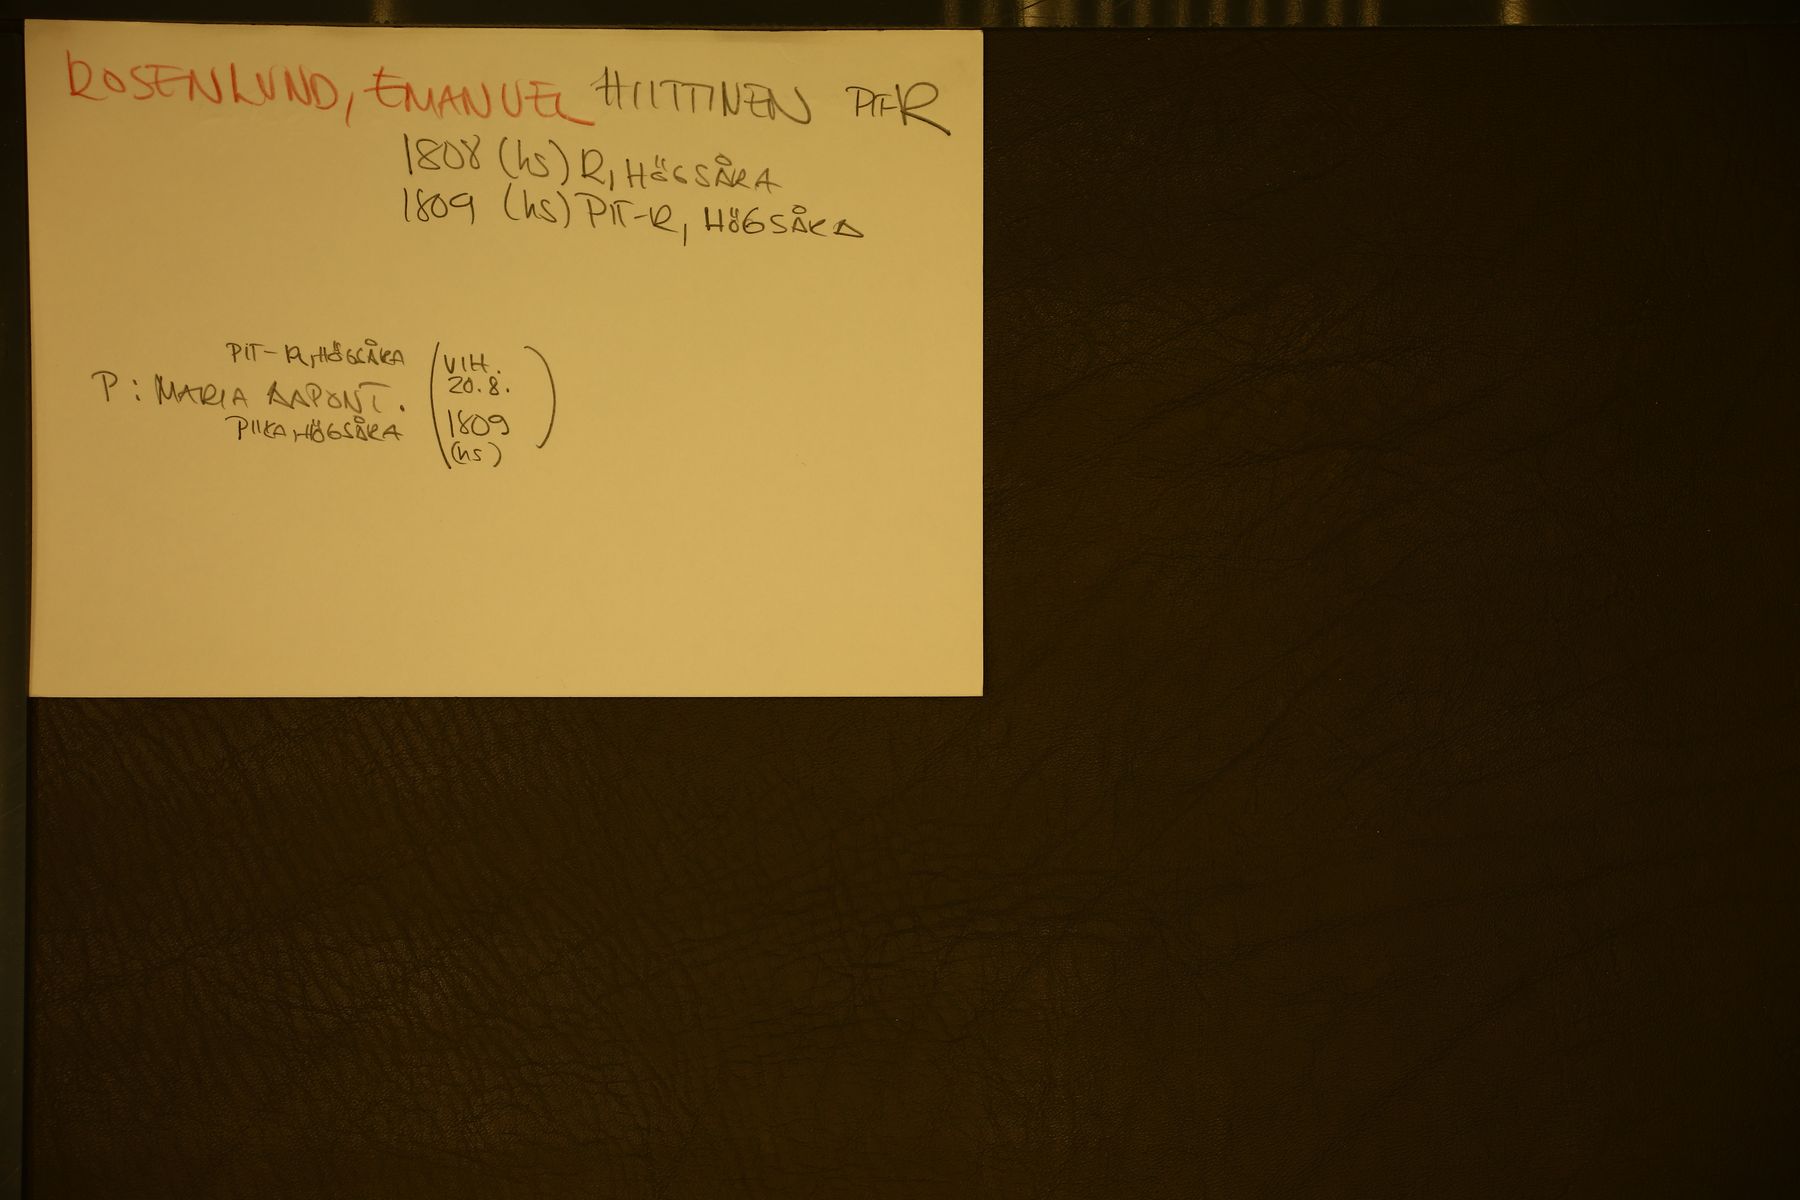 ROSENLUND, EMANUEL HIITTINEN PIT-R
1808 (hs) R, HÖGSÅRA
1809 (hs) PIT-R, HÖGSÅRA
PIT-R, HÖGSÅRA
P: MARIA AAPONT.
PIIKA, HÖGSÅRA
(VIH.
20.8.
1809
(hs))